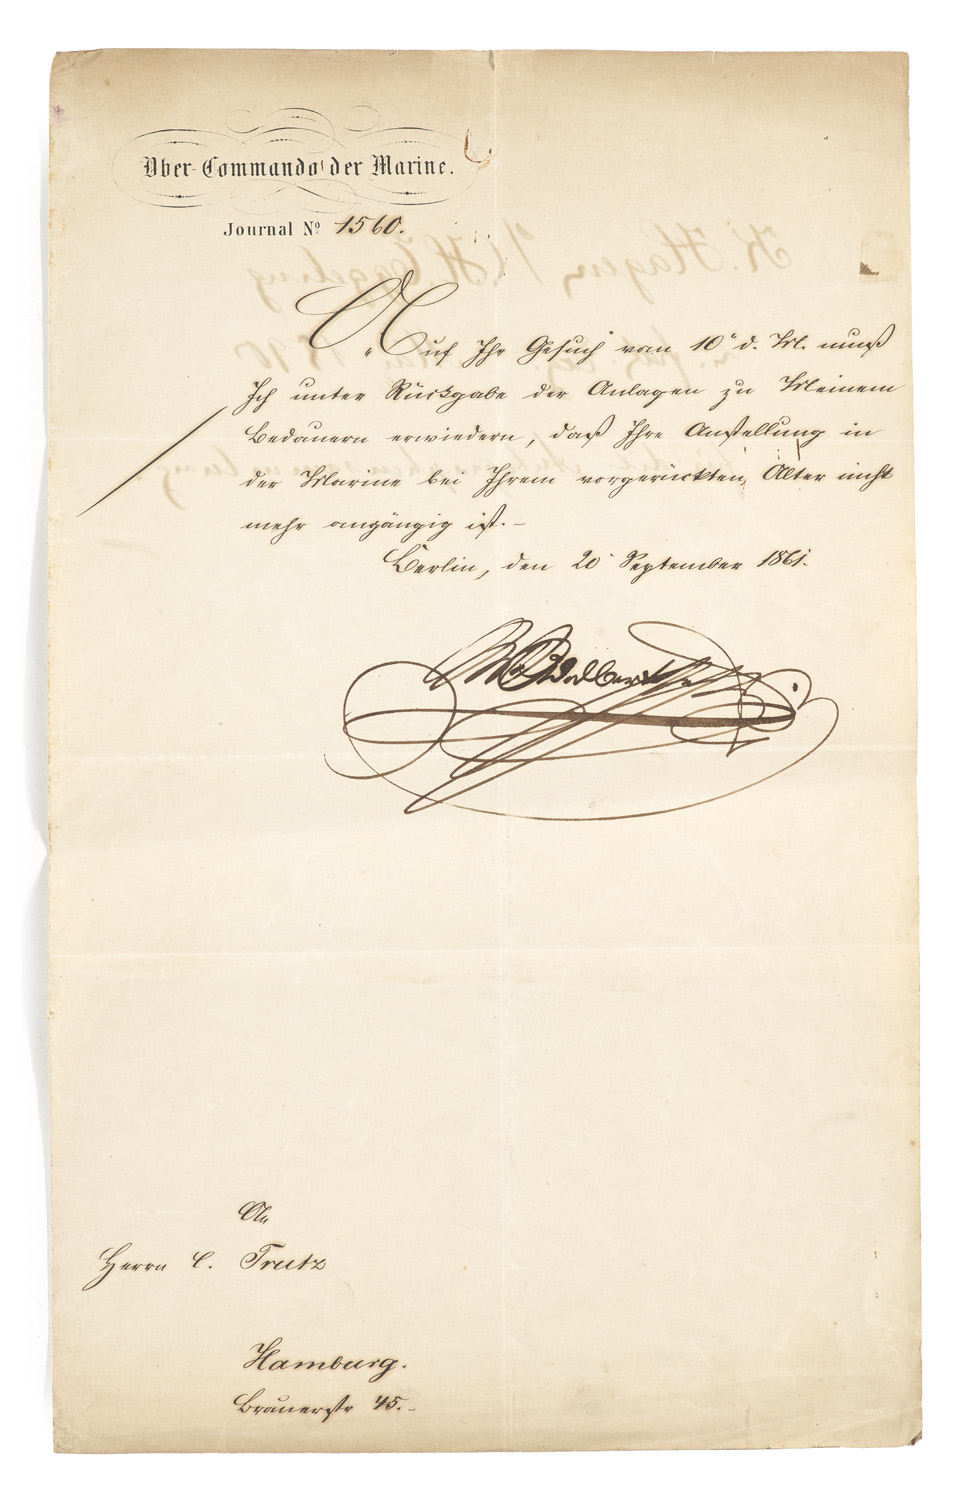 Ober-Commando der Marine.
Journal No 1560.
Auf Ihr Gesuch vom 10t d. M. muß
Ich unter Rückgabe der Anlagen zu Meinem
Bedauern erwiedern, daß Ihre Anstellung in
der Marine bei Ihrem vorgerückten Alter nicht
mehr angängig ist. –
Berlin, den 20t September 1861.
Adalbert
An
Herrn C. Trutz
Hamburg.
Brauerstr 45. –
K. Hagen, K. H. Eggeling